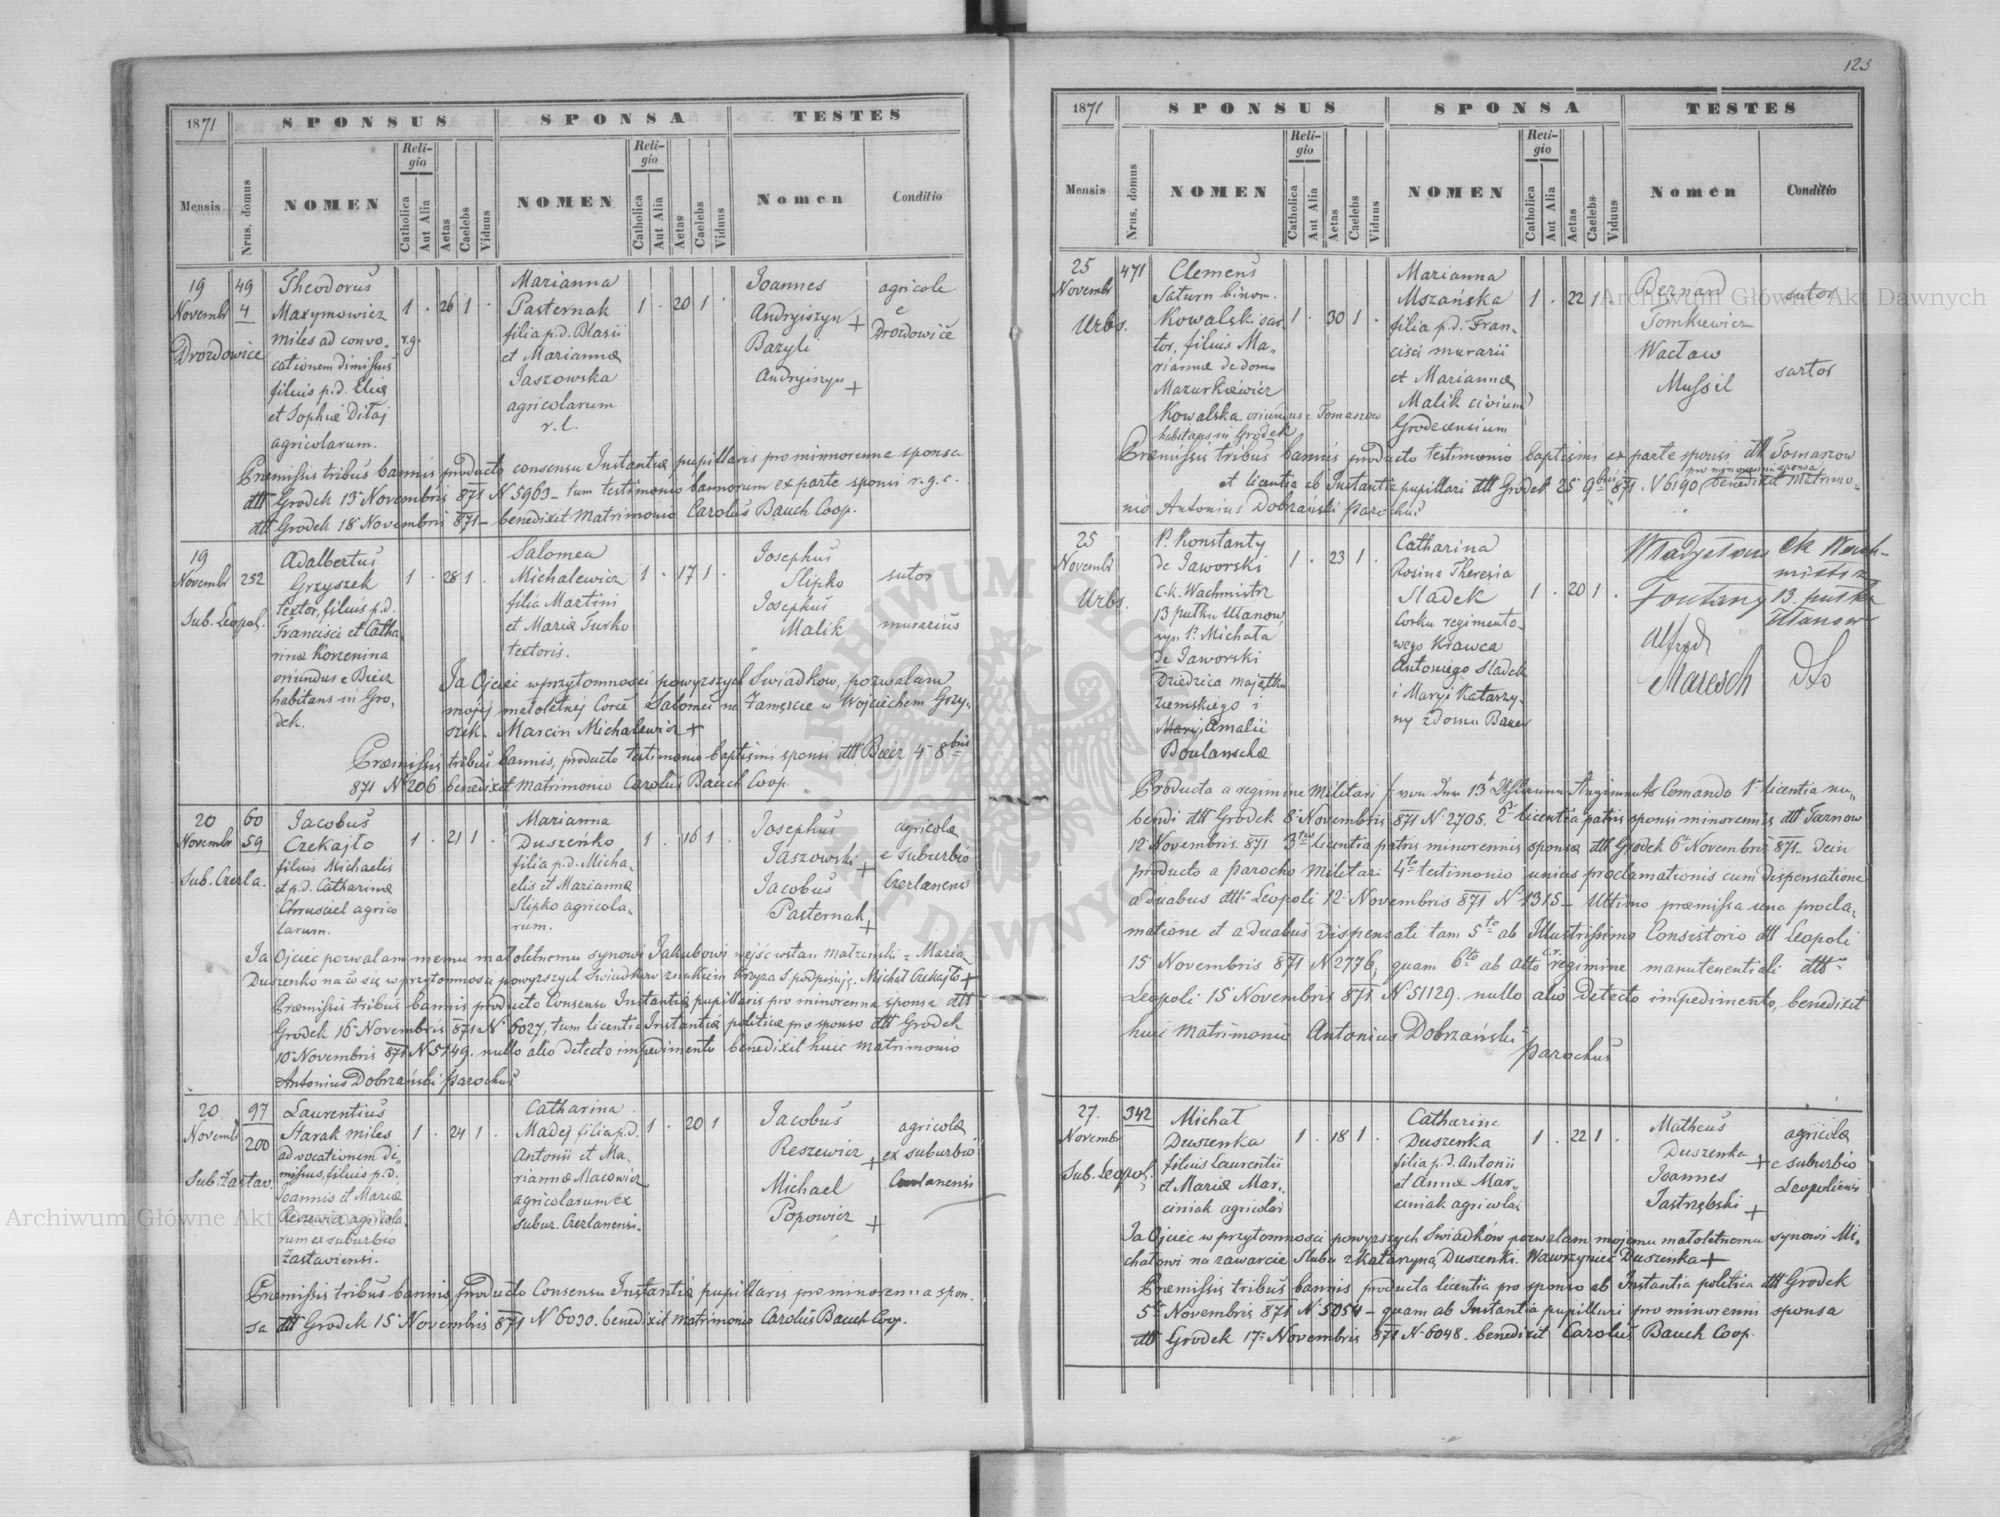 123
1871
SPONSUS
SPONSA
TESTES
Mensis
Nrus. domus
NOMEN
Religio
Catholica
Aut Alia
Aetas
Caelebs
Viduus
NOMEN
Religio
Catholica
Aut Alia
Aetas
Caelebs
Viduus
Nomen
Conditio
19
Novembr
Drozdowice
49
4
Theodorus
Maxymowicz
miles ad convo-
cationem dimissus
filius p.d. Eliæ
et Sophiæ Ditaj
agricolarum.
1 r.g. 26 1
Marianna
Pasternak
filia p.d. Blasii
et Mariannæ
Jaszowska
agricolarum
r. l.
1 20 1
Joannes
Andryiszyn +
Bazyli
Andryiszyn +
agricolæ
e
Drozdowice
Præmissis tribus bannis, producto consensu Instantiæ pupillaris pro minorenna sponsa
dtto Grodek 13 Novembris 871 N 5963 - tum testimonio bannorum ex parte sponsi r.g.c.
dtto Grodek 18 Novembris 871 - benedixit Matrimonio Carolus Bauch Coop.
19
Novembr
Sub. Leopol.
252
Adalbertus
Grzyszek
textor, filius p.d.
Francisci et Catha
rinæ Korzenina
oriundus e Biecz
habitans in Gro,
dek.
1 28 1
Salomea
Michalewicz
filia Martini
et Mariæ Turko
textoris.
1 17 1
Josephus
Slipko
Josephus
Malik
sutor
murarius
Ja Ojciec w przytomności powyższych Swiadkow, pozwalam
mojej małoletnej Corce Salomei na Zamęscie w Wojciechem Grzy-
szek. Marcin Michalewicz +
Præmissis tribus bannis, producto testimonio baptismi sponsi dtt Biecz 4 8bris
871 N 206 benedixit matrimonio Carolus Bauch Coop.
20
Novembr
Sub. Czerla.
60
59
Jacobus
Czekajło
filius Michaelis
et p.d. Catharinæ
Chrusciel agrico
larum.
1 21 1
Marianna
Duszeńko
filia p.d. Micha-
elis et Mariannæ
Slipko agricola-
rum.
1 16 1
Josephus
Jaszowski +
Jacobus
Pasternak +
agricolæ
e suburbio
Czerlanensi
Ja Ojciec pozwalam memu małoletnemu synowi Jakubowi wejść w stan małzeński z Maria.
Duszenko na co się w przytomności powyzszych Swiadkow znakiem Krzyza S podpisuję. Michał Czekajło +
Præmissis tribus bannis producto Consensu Instantiæ pupillaris pro minorenna sponsa dtt
Grodek 16 Novembris 871 N 6027, tum licentia Instantiæ politicæ pro sponso dtt Grodek
10 Novembris 871 N 5149. nullo alio detecto impedimento benedixit huic matrimonio
Antonius Dobrzański parochus
20
Novembr
Sub. Zastav.
97
200
Laurentius
Starak miles
ad vocationem di-
missus, filius p.d.
Joannis et Mariæ
Reszewicz agricola-
rum ex suburbio
Zastaviensi.
1 24 1
Catharina
Madej filia p.d.
Antonii et Ma-
riannæ Macowicz
agricolarum ex
subur. Czerlanensi.
1 20 1
Jacobus
Reszewicz +
Michael
Popowicz +
agricolæ
ex suburbio
Czerlanensi
Præmissis tribus bannis producto Consensu Instantiæ pupillaris pro minorenna spon.
sa dtt Grodek 15 Novembris 871 N 6030. benedixit matrimonio Carolus Bauch Coop.
1871
SPONSUS
SPONSA
TESTES
Mensis
Nrus. domus
NOMEN
Religio
Catholica
Aut Alia
Aetas
Caelebs
Viduus
NOMEN
Religio
Catholica
Aut Alia
Aetas
Caelebs
Viduus
Nomen
Conditio
25
Novembr
Urbs.
471
Clemens
Saturn binom.
Kowalski sar-
tor, filius Ma,,
riannæ de domo
Mazurkiewicz
Kowalska oriundus e Tomaszow
habitans in Grodek
1 30 1
Marianna
Mszańska
filia p.d. Fran-
cisci murarii
et Mariannæ
Malik civium
Grodecensium
1 22 1
Bernard
Tomkiewicz
Wacław
Mussil
sutor
sartor
Præmissis tribus bannis producto testimonio baptismi ex parte sponsi dtt Tomaszow
et licentia ab Instantia pupillari dtt Grodek 25 9bris 871. N 6190, pro minorenni sponsa benedixit matrimo-
nio Antonius Dobrzański parochus
25
Novembr
Urbs.
P. Konstanty
de Jaworski
c.k. Wachmistrz
13 pułku Ułanow
syn P. Michała
de Jaworski
Dziedzica majątku
ziemskiego i
Maryi Amalii
Boulanschæ
1 23 1
Catharina
Rosina Theresia
Sladek
Corka regimento-
wego Krawca
Antoniego Sladek
i Maryi Katarzy-
ny z domu Bauer
1 20 1
Władysław
Fontany
Alfred
Maresch
ck Wach-
mistrz
13. pułku
Ułanow
dto
Producta a regimine Militari / von dem 13 Uhlanen Regiments Comando 1 licentia nu,,
bendi dtt Grodek 8 Novembris 871 N 2705. 2 licentia patris sponsi minorennis dtt Tarnow
12 Novembris 871 3 licentia patris minorennis sponsæ dtt Grodek 6 Novembris 871 - dein
producto a parocho Militari 4to testimonio unius proclamationis cum dispensatione
a duabus dtt Leopoli 12 Novembris 871 N 1315 - Ultimo præmissa una procla,
matione et a duabus dispensati tam 5to ab Illustrissimo Consistorio dtt Leopoli
15 Novembris 871 N 2776, quam 6to ab alto cr. regimine manutenentiali dtt
Leopoli 15 Novembris 871 N 51129. nullo alio detecto impedimento, benedixit
huic matrimonio Antonius Dobrzański
parochus
27.
Novembr
Sub. Leopol.
342
Michał
Duszenka
filius Laurentii
et Mariæ Mar,,
ciniak agricolæ
1 18 1
Catharina
Duszenka
filia p.d. Antonii
et Annæ Mar,,
ciniak agricolæ
1 22 1
Matheus
Duszenka +
Joannes
Jastrzębski +
agricolæ
e suburbio
Leopoliensi
Ja Ojciec w przytomności powyzszych Swiadków pozwalam mojemu małoletnemu synowi Mi-
chałowi na zawarcie slubu z Kataryną Duszenki. Wawrzyniec Duszenka +
Præmissis tribus bannis producta licentia pro sponso ab Instantia politica dtt Grodek
5 Novembris 871 N 5054 - quam ab Instantia pupillari pro minorenni sponsa
dtt Grodek 17 Novembris 871 N 6048. benedixit Carolus Bauch Coop.
Archiwum Główne Akt Dawnych
Archiwum Główne Akt Dawnych
ARCHIWUM GŁÓWNE AKT DAWNYCH